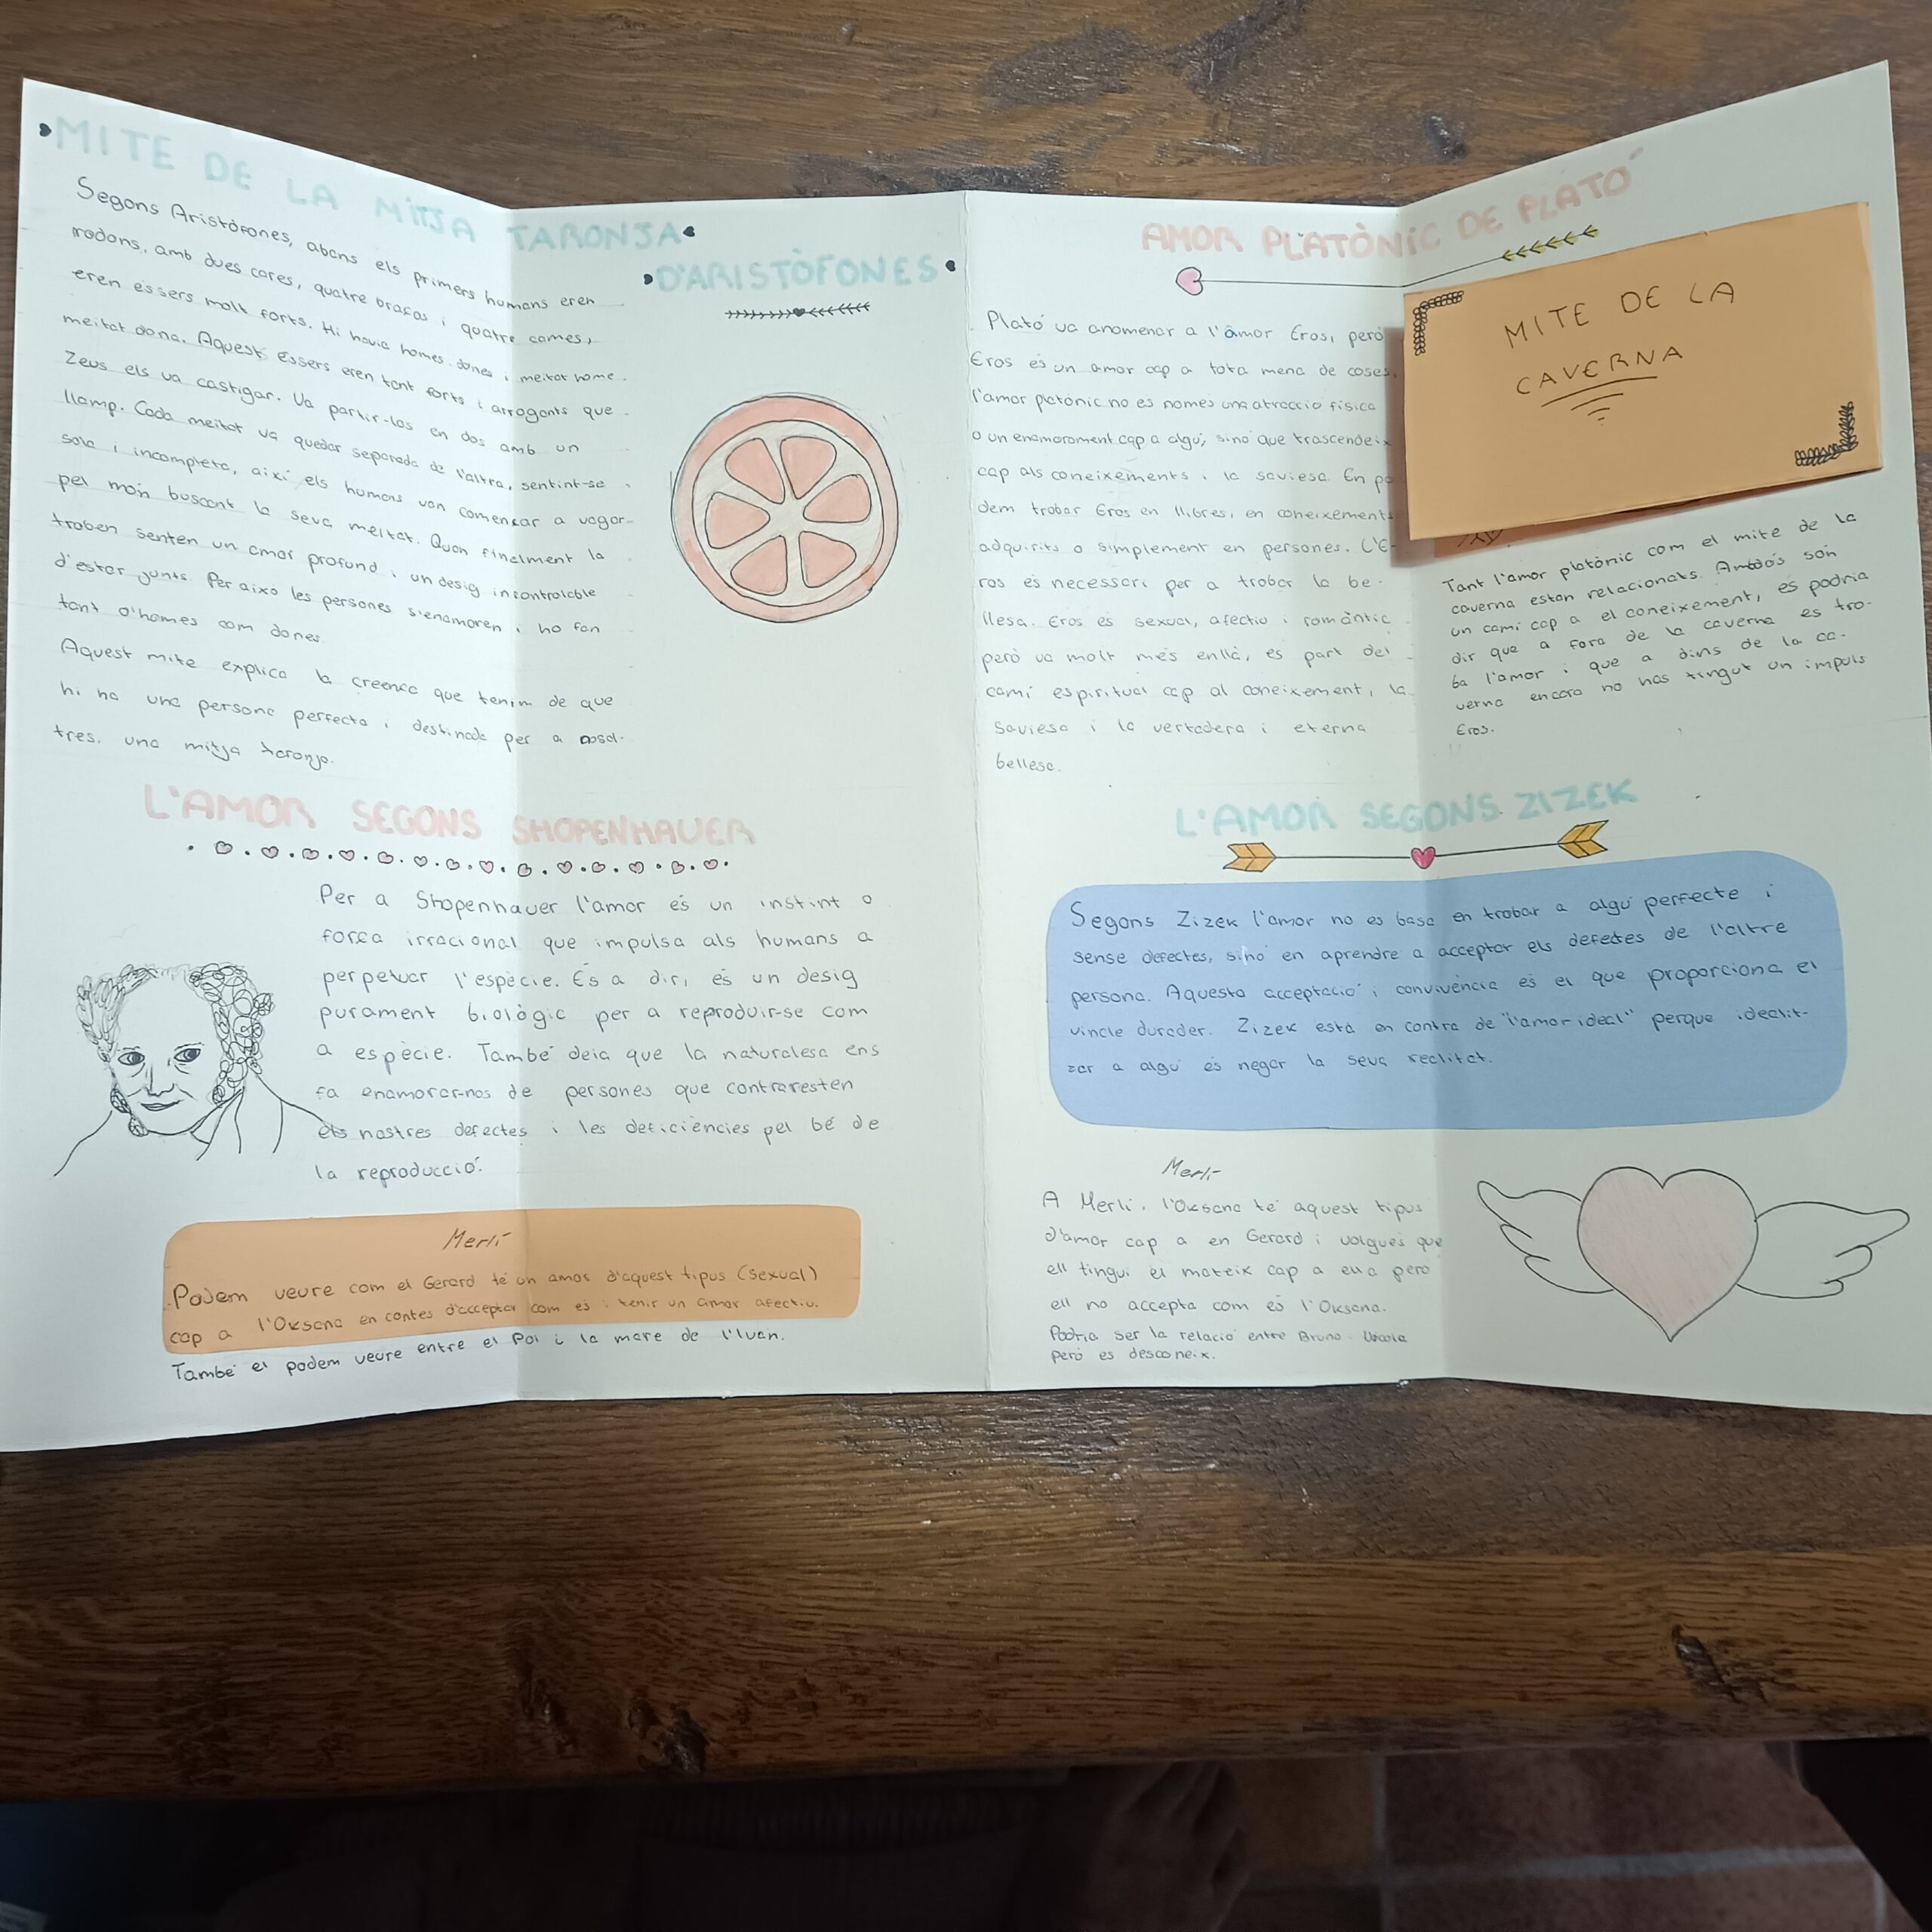 MITE DE LA MITJA TARONJA
D'ARISTÒFONES
Segons Aristòfones, abans els primers humans eren
rodons, amb dues cares, quatre braços i quatre cames,
eren éssers molt forts. Hi havia homes, dones i meitat home
meitat dona. Aquest Éssers eren tant forts i arrogants que
Zeus els va castigar. Va partir-los en dos amb un
llamp. Cada meitat va quedar separada de l'altra, sentint-se
sola i incompleta, així els humans van comensar a vagar
pel món buscant la seva meitat. Quan finalment la
troben senten un amor profund i un desig incontrolable
d'estar junts. Per això les persones s'enamoren i ho fan
tant d'homes com dones.
Aquest mite explica la creença que tenim de que
hi ha una persona perfecta i destinada per a nosal-
tres, una mitja taronja.
L'AMOR SEGONS SHOPENHAUER
Per a Shopenhauer l'amor és un instint o
força irracional que impulsa als humans a
perpetuar l'espècie. És a dir, és un desig
purament biològic per a reproduir-se com
a espècie. També deia que la naturalesa ens
fa enamorar-nos de persones que contraresten
els nostres defectes i les deficiències pel bé de
la reproducció.
Merlí
Podem veure com el Gerard té un amos d'aquest tipus (sexual)
cap a l'Oksana en contes d'acceptar com és i tenir un amor afectiu.
També el podem veure entre el Pol i la mare de l'Ivan.
AMOR PLATÒNIC DE PLATÓ
Plató va anomenar a l'àmor Eros, però
Eros és un amor cap a tota mena de coses,
l'amor platònic no es nomes una atraccio física
o un enamorament cap a algú, sinó que trascendeix
cap als coneixements i la saviesa. En po
dem trobar Eros en llibres, en coneixements
adquirits o simplement en persones. L'E-
ros és necessari per a trobar la be-
llesa. Eros és sexual, afectiu i romàntic
però va molt més enllà, es part del
camí espiritual cap al coneixement, la
saviesa i la vertadera i eterna
bellesa.
MITE DE LA
CAVERNA
Tant l'amor platònic com el mite de la
caverna estan relacionats. Ambdós són
un camí cap a el coneixement, es podria
dir que a fora de la caverna es tro-
ba l'amor i que a dins de la ca-
verna encara no has tingut un impuls
Eros.
L'AMOR SEGONS ZIZEK
Segons Zizek l'amor no es basa en trobar a algú perfecte i
sense defectes, sinó en aprendre a acceptar els defectes de l'altre
persona. Aquesta acceptació i convivència és el que proporciona el
vincle durader. Zizek està en contra de "l'amor ideal" perque idealit-
zar a algú és negar la seva realitat.
Merlí
A Merlí, l'Oksana té aquest tipus
d'amor cap a en Gerard i volgués que
ell tingui el mateix cap a ella però
ell no accepta com és l'Oksana.
Podria ser la relació entre Bruno i
però es desconeix.